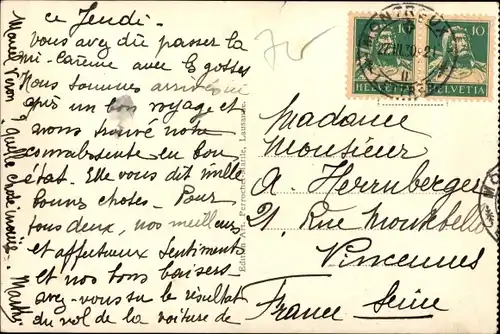 ce Jeudi -
Vous avez dû passer la
mi-carême avec les gosses
Nous sommes arrivés ici
après un bon voyage et
avons trouvé notre
convalescente en bon
état. Elle vous dit mille
bonnes choses - Pour
tous deux, nos meilleurs
et affectueux sentiments
et nos bons baisers -
avez-vous su le résultat
du vol de la voiture de
quelle
Edition Art. Perrochet-Matile, Lausanne
MONTREUX
10 10
HELVETIA HELVETIA
Madame
Monsieur
A. Herrnberger
21, Rue Montebello
Vincennes
Seine
France